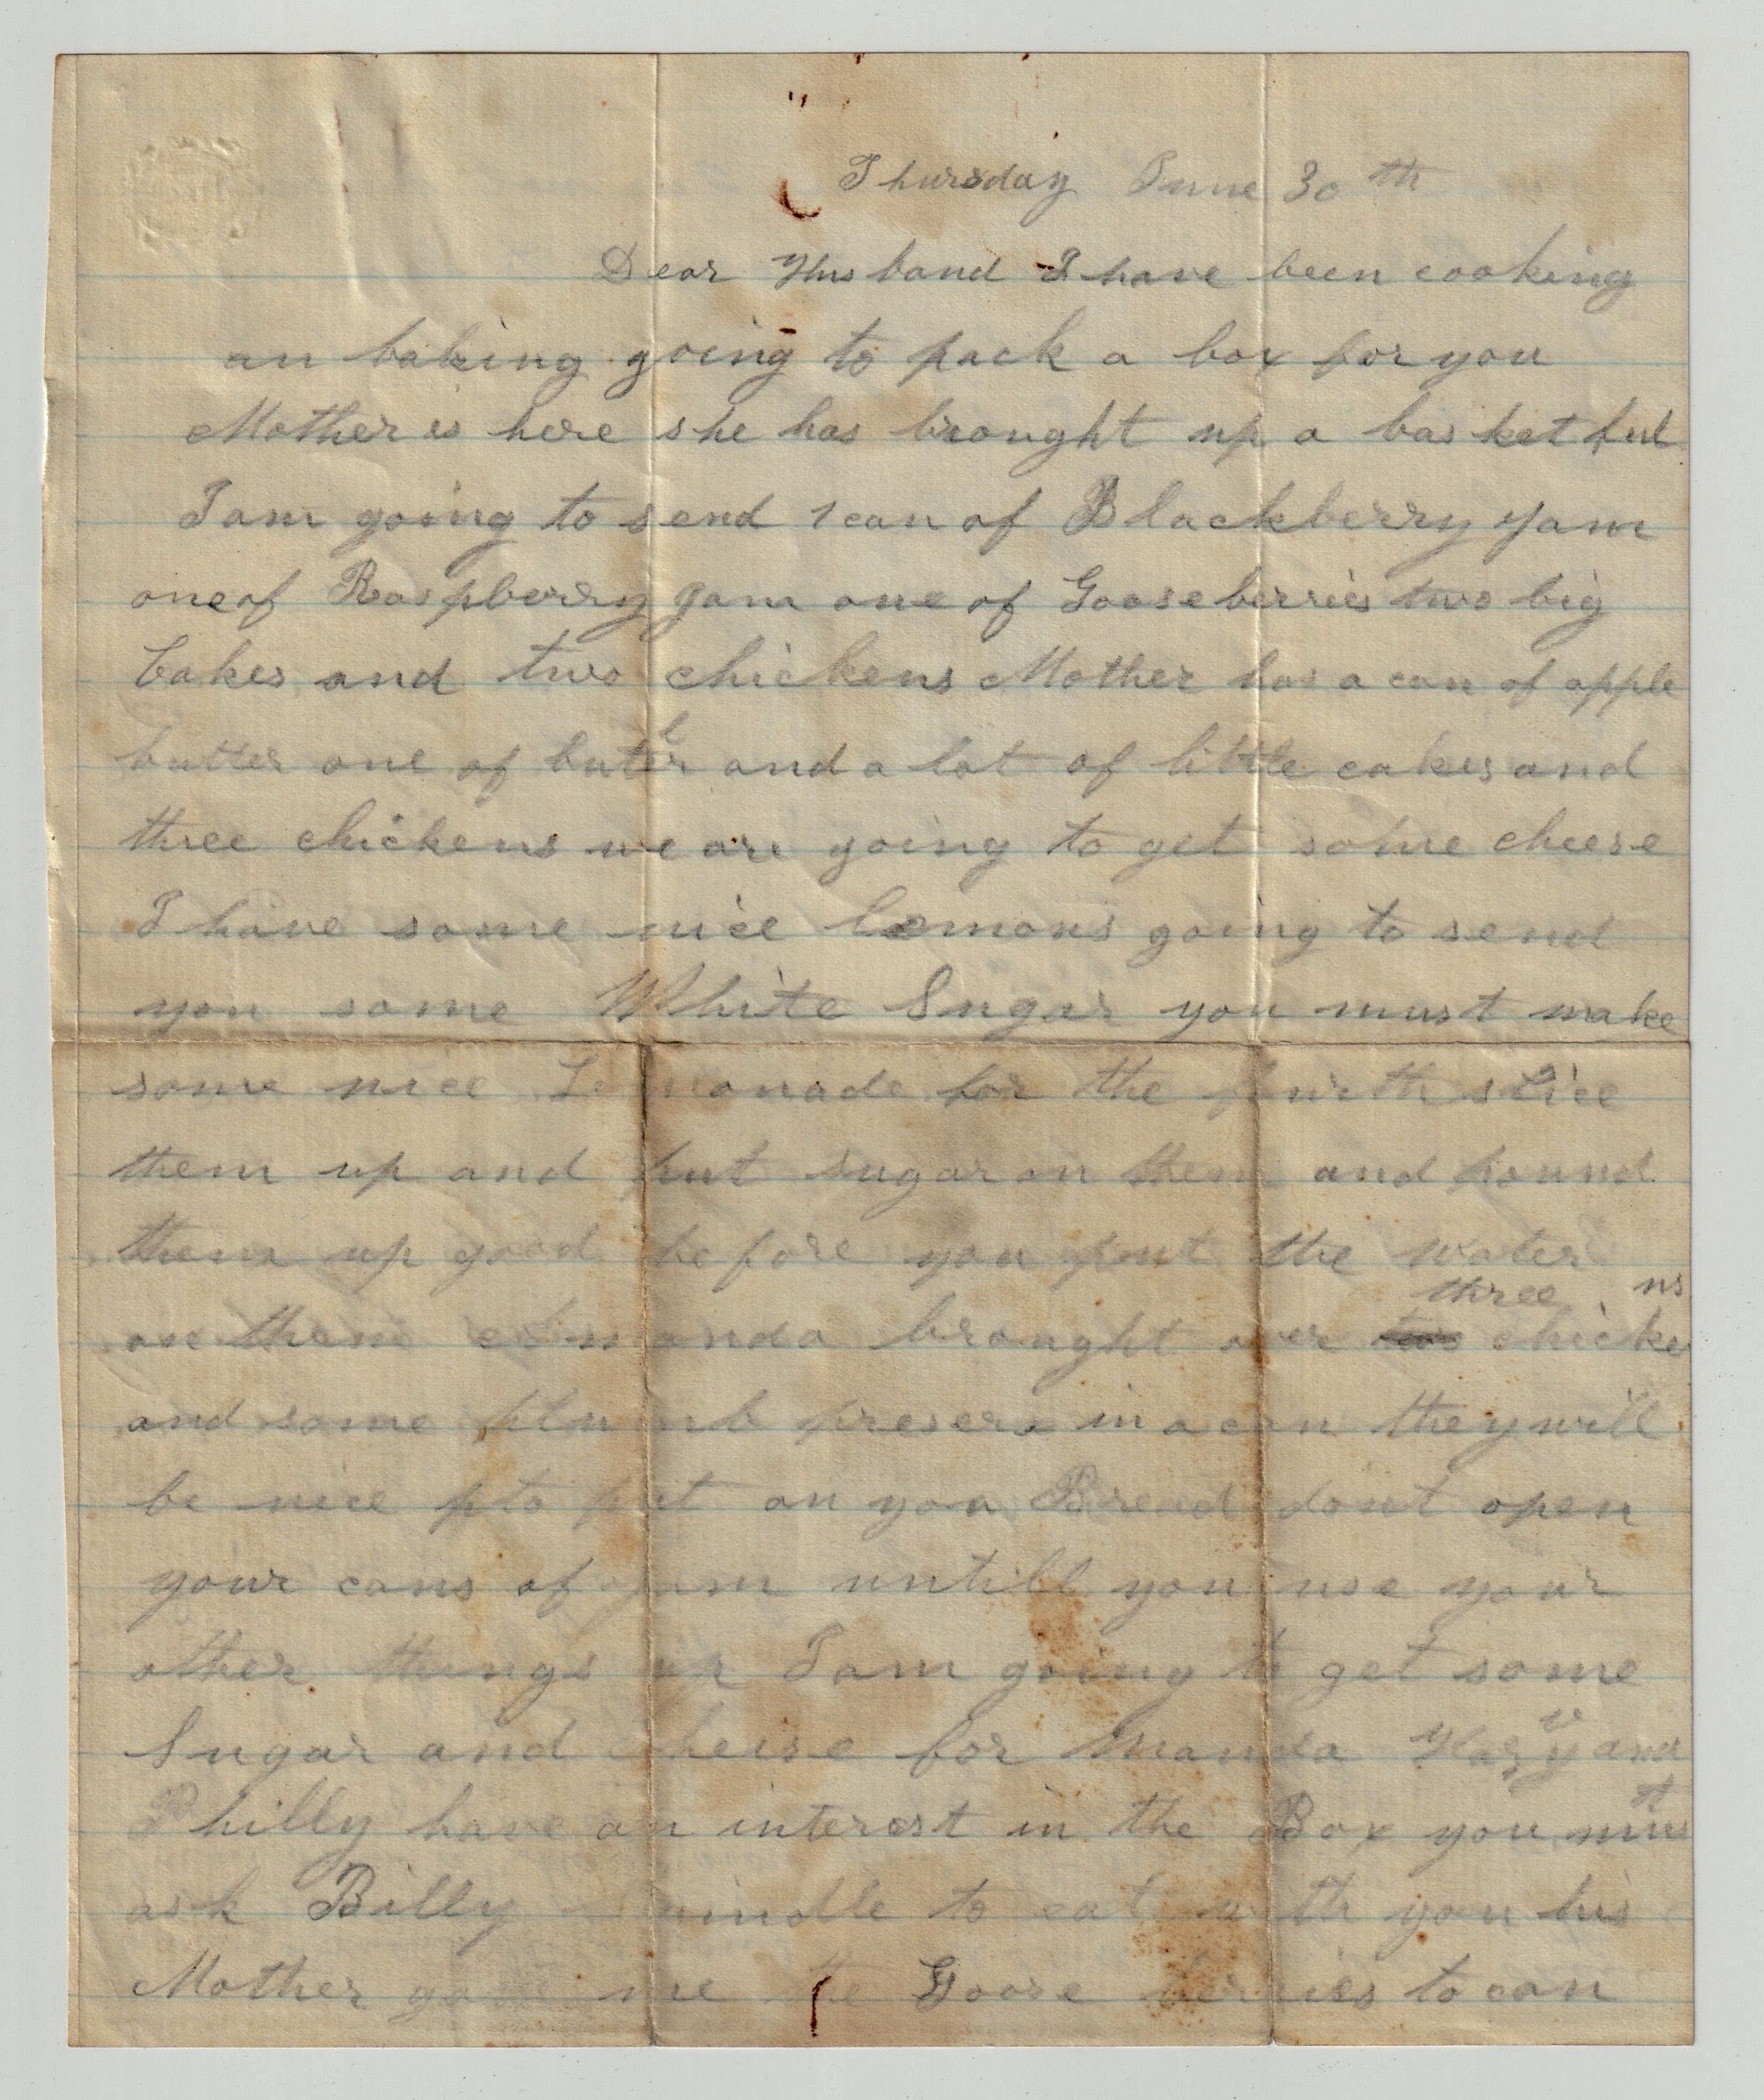 Thursday June 30th
Dear Husband I have been cooking
an baking going to pack a box for you
Mother is here she has brought up a basket ful
I am going to send 1 can of Blackberry Jam
one of Raspberry Jam one of Gooseberries two big
Cakes and two chickens Mother has a can of apple
butter one of butter and a lot of little cakes and
three chickens we are going to get some cheese
I have some nice lemons going to send
you some White Sugar you must make
some nice Lemonade for the fourth slice
them up and put sugar on them and pound
them up good before you put the water
on them manda brought over three chickens
and some plumb preserx in a can they will
be nice pto put on you Bread dont open
your cans of jam untill you use your
other things up I am going to get some
Sugar and cheese for manda and
Philly have an interest in the Box you must
ask Billy to eat with you his
Mother gave me the Goose berries to can